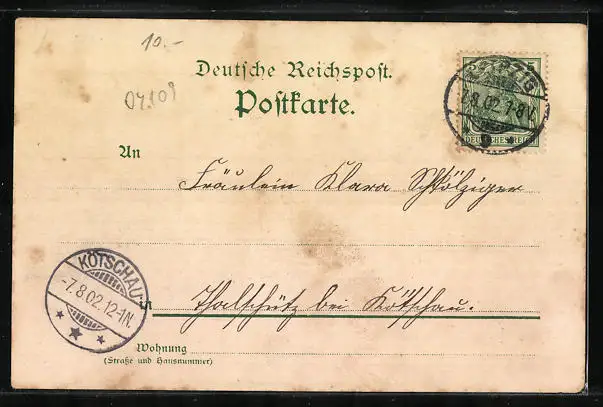 10.-
04109
Deutsche Reichspost.
Postkarte.
5
LEIPZIG
8.02.7-8V.
DEUTSCHES REICH
An
Fräulein Klara Schölziger
KÖTSCHAU
-7.8.02.12-1N.
in Thalschütz bei Kötschau.
Wohnung
(Straße und Hausnummer)